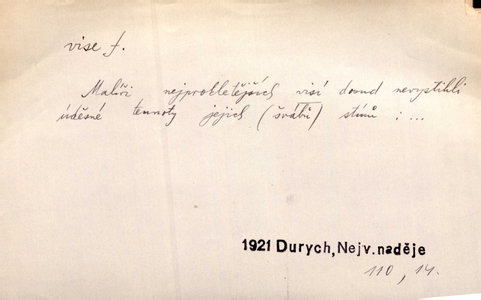 vise f.
Malíři nejprokletějších visí dosud nevystihli
úděsné temnoty jejich (švábů) stínů : ...
1921 Durych, Nejv. naděje
110, 14.